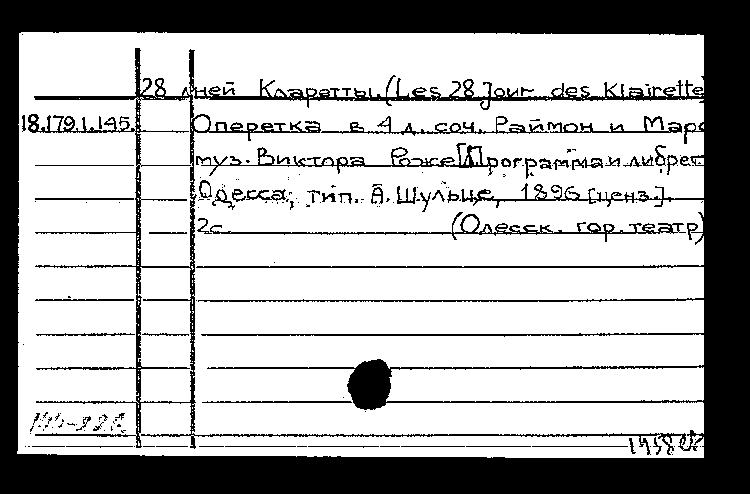 28 дней Кларетты. (Les 28 Jour des Klairette)
18.179.1.145. Оперетка в 4 д. соч. Раймон и Марс
муз. Виктора Роже [Программа и либрет
Одесса, тип. А. Шульце, 1896 [ценз.].
2с. (Одесск. гор. театр)